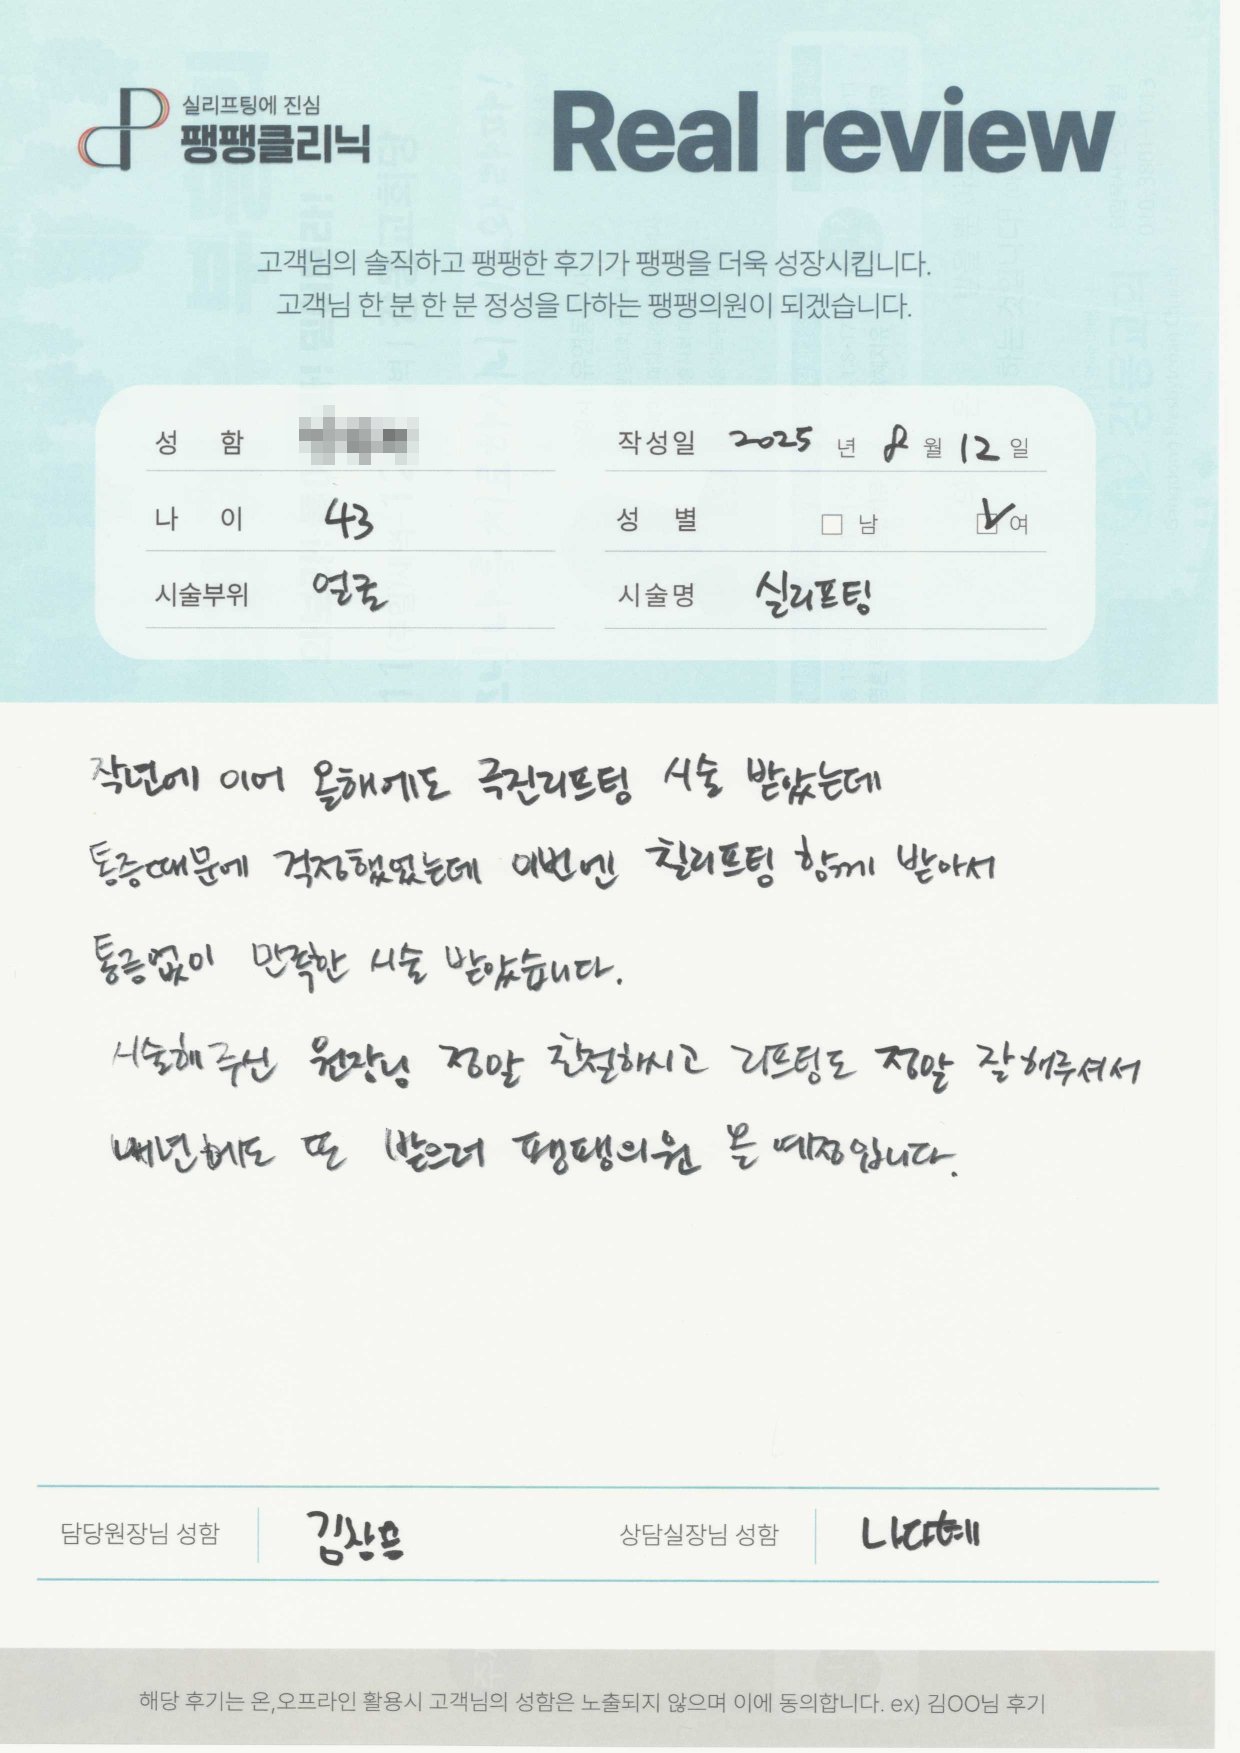 실리프팅에 진심
팽팽클리닉
Real review
고객님의 솔직하고 팽팽한 후기가 팽팽을 더욱 성장시킵니다.
고객님 한 분 한 분 정성을 다하는 팽팽의원이 되겠습니다.
성 함 작성일 2025 년 8 월 12 일
나 이 43 성 별 남 여
시술부위 얼굴 시술명 실리프팅
작년에 이어 올해에도 극진리프팅 시술 받았는데
통증때문에 걱정했었는데 이번엔 실리프팅 함께 받아서
통증없이 만족한 시술 받았습니다.
시술해주신 원장님 정말 친절하시고 리프팅도 정말 잘해주셔서
내년에도 또 받으러 팽팽의원 올 예정입니다.
담당원장님 성함 상담실장님 성함 나다혜
해당 후기는 온,오프라인 활용시 고객님의 성함은 노출되지 않으며 이에 동의합니다. ex) 김OO님 후기